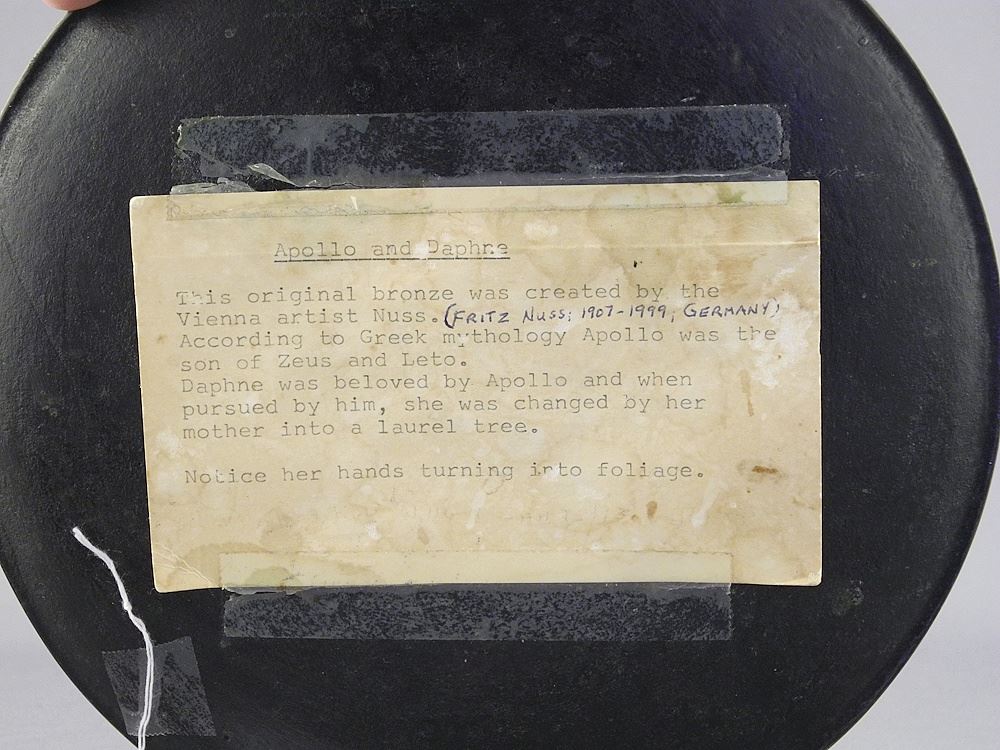 Apollo and Daphne
This original bronze was created by the
Vienna artist Nuss. (FRITZ NUSS; 1907-1999, GERMANY)
According to Greek mythology Apollo was the
son of Zeus and Leto.
Daphne was beloved by Apollo and when
pursued by him, she was changed by her
mother into a laurel tree.
Notice her hands turning into foliage.